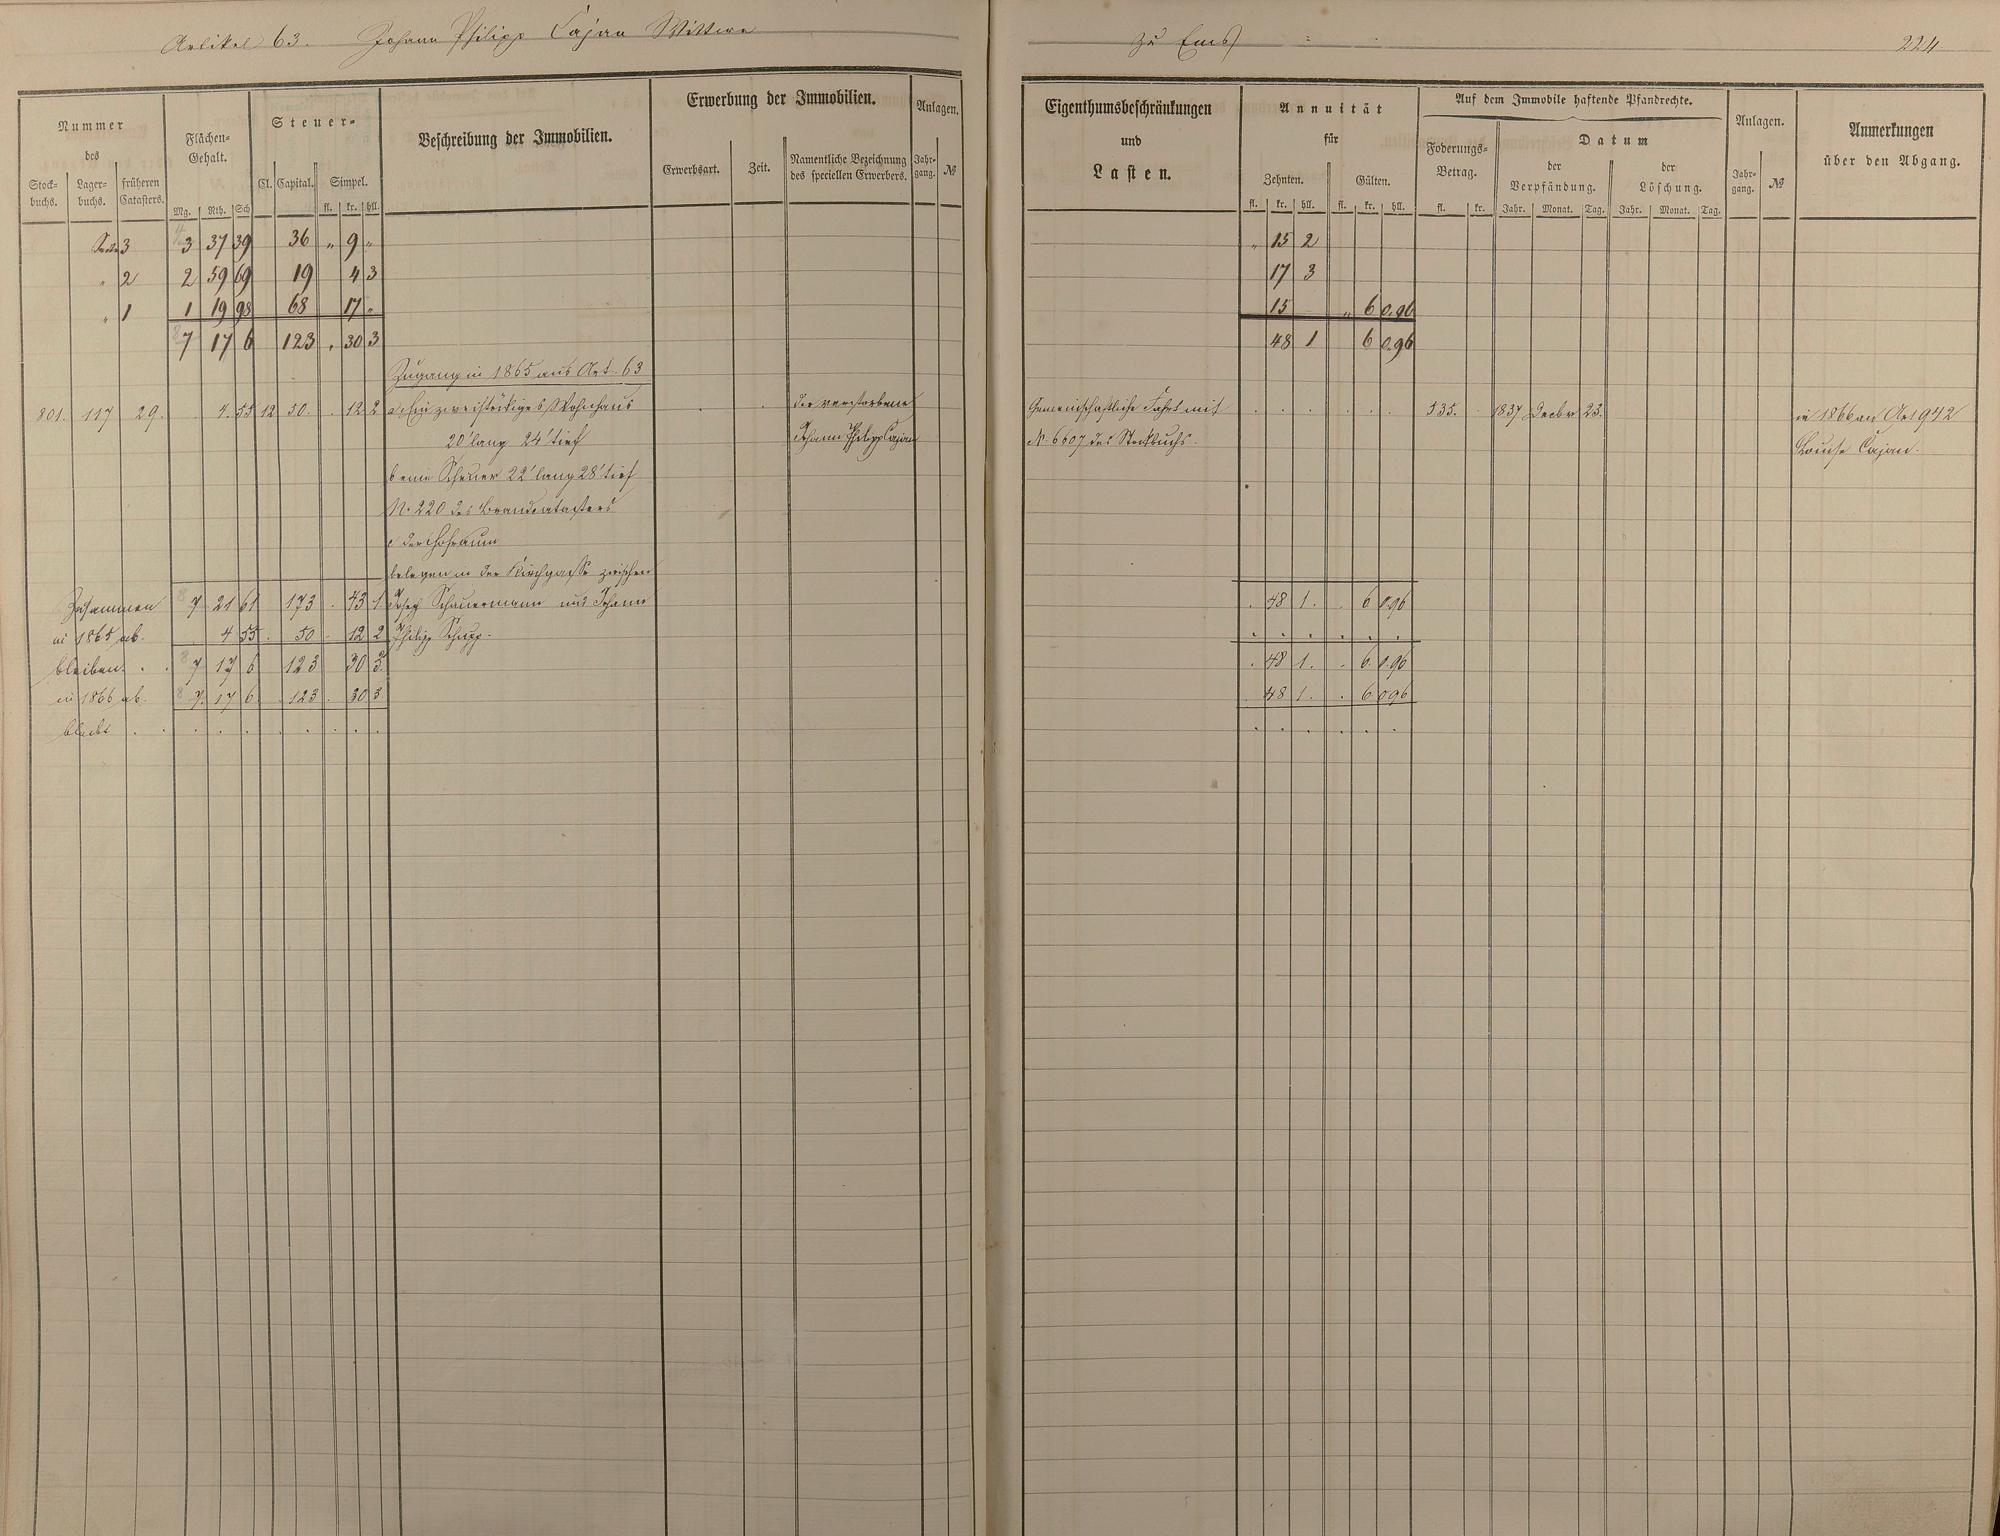 Artikel 63. Johann Philipp Cajan Wittwe
zu Ems
224
Nummer
des
Stock-
buchs.
Lager-
buchs.
früheren
Catasters.
Flächen-
Gehalt.
Mg. Rth. Sch
Steuer-
Cl. Capital. Simpel.
fl. kr. hll.
Beschreibung der Immobilien.
Erwerbung der Immobilien.
Erwerbsart. Zeit.
Namentliche Bezeichnung
des speciellen Erwerbers.
Anlagen.
Jahr-
gang. №
Eigenthumsbeschränkungen
und
Lasten.
Annuität
für
Zehnten. Gülten.
fl. kr. hll. fl. kr. hll.
Auf dem Immobile haftende Pfandrechte.
Foderungs-
Betrag.
fl. kr.
Datum
der
Verpfändung.
Jahr. Monat. Tag.
der
Löschung.
Jahr. Monat. Tag.
Anlagen.
Jahr-
gang. №
Anmerkungen
über den Abgang.
Seite 3 3 37 39 36 " 9 " " 15 2
" 2 2 59 69 19 4 3 17 3
" 1 1 19 98 68 17 " 15 " 6 0.96
7 17 6 123 . 30 3 48 1 6 0.96
Zugang in 1865 aus Art. 63
801. 117 29. . 4. 55 12 50. . 12 2 a. Ein zweistöckiges Wohnhaus der verstorbene Gemeinschaftliche Fahrt mit 535. 1837 Decbr 23. in 1866 an Art 942
20' lang 24' tief Johann Philipp Cajan N. 6607 des Stockbuchs. Louise Cajan.
b eine Scheuer 22' lang 28' tief
N. 220 des Brandcatasters
c der Hofraum
belegen in der Kirchgasse zwischen
Zusammen 7 21 61 173 . 43 1. Josef Schauermann und Johann . 48 1. . 6 0.96
in 1865 ab. . 4 55 . 50 . 12 2 Philipp Schupp. . . . . . .
bleiben . . 7 17 6 123 30 3. . 48 1. . 6. 0.96
in 1866 ab. 7. 17 6. . 123 . 30. 3. . 48 1. . 6 0 96
bleibt . . . . . . . . . .